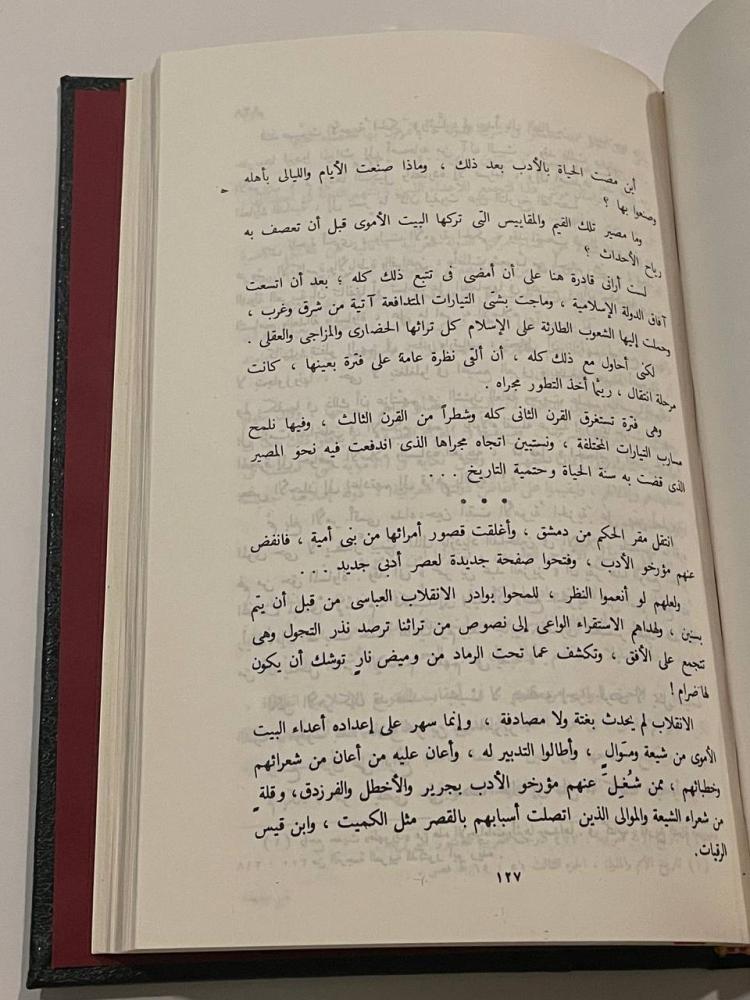 أين مضت الحياة بالأدب بعد ذلك ، وماذا صنعت الأيام والليالى بأهله
وصنعوا بها ؟
وما مصير تلك القيم والمقاييس التى تركها البيت الأموى قبل أن تعصف به
رياح الأحداث ؟
لست أرانى قادرة هنا على أن أمضى فى تتبع ذلك كله ؛ بعد أن اتسعت
آفاق الدولة الإسلامية ، وماجت بشتَّى التيارات المتدافعة آتية من شرق وغرب ،
وحملت إليها الشعوب الطارئة على الإسلام كل تراثها الحضارى والمزاجى والعقلى .
لكنى أحاول مع ذلك كله ، أن ألقى نظرة عامة على فترة بعينها ، كانت
مرحلة انتقال ، ريثما أخذ التطور مجراه .
وهى فترة تستغرق القرن الثانى كله وشطراً من القرن الثالث ، وفيها نلمح
مسارب التيارات المختلفة ، ونستبين اتجاه مجراها الذى اندفعت فيه نحو المصير
الذى قضت به سنة الحياة وحتمية التاريخ . . .
* * *
انتقل مقر الحكم من دمشق ، وأغلقت قصور أمرائها من بنى أمية ، فانفض
عنهم مؤرخو الأدب ، وفتحوا صفحة جديدة لعصر أدبى جديد . . .
ولعلهم لو أنعموا النظر ، للمحوا بوادر الانقلاب العباسى من قبل أن يتم
بسنين ، ولهداهم الاستقراء الواعى إلى نصوص من تراثنا ترصد نذر التحول وهى
تتجمع على الأفق ، وتكشف عما تحت الرماد من وميض نارٍ توشك أن يكون
لها ضرام !
الانقلاب لم يحدث بغتة ولا مصادفة ، وإنما سهر على إعداده أعداء البيت
الأموى من شيعة ومَوالٍ ، وأطالوا التدبير له ، وأعان عليه من أعان من شعرائهم
وخطبائهم ، ممن شُغِلَ عنهم مؤرخو الأدب بجرير والأخطل والفرزدق ، وقلةٍ
من شعراء الشيعة والموالى الذين اتصلت أسبابهم بالقصر مثل الكميت ، وابن قيس
الرقيات.
١٢٧